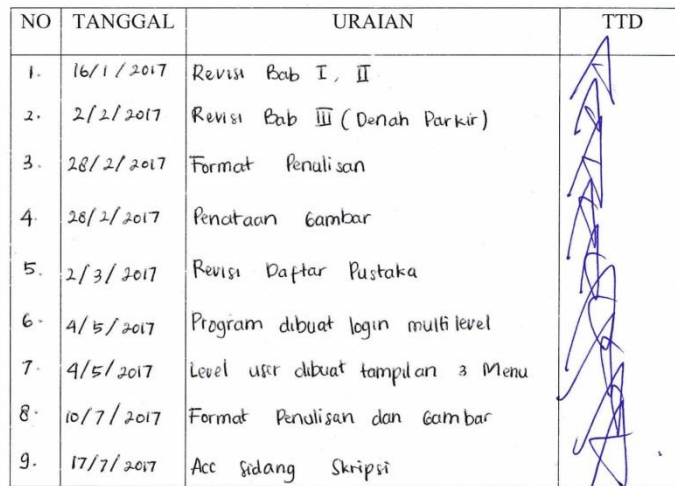 NO TANGGAL URAIAN TTD
1. 16/1/2017 Revisi Bab I, II
2. 2/2/2017 Revisi Bab III (Denah Parkir)
3. 28/2/2017 Format Penulisan
4. 28/2/2017 Penataan Gambar
5. 2/3/2017 Revisi Daftar Pustaka
6. 4/5/2017 Program dibuat login multi level
7. 4/5/2017 Level user dibuat tampilan 3 Menu
8. 10/7/2017 Format Penulisan dan Gambar
9. 17/7/2017 Acc Sidang Skripsi